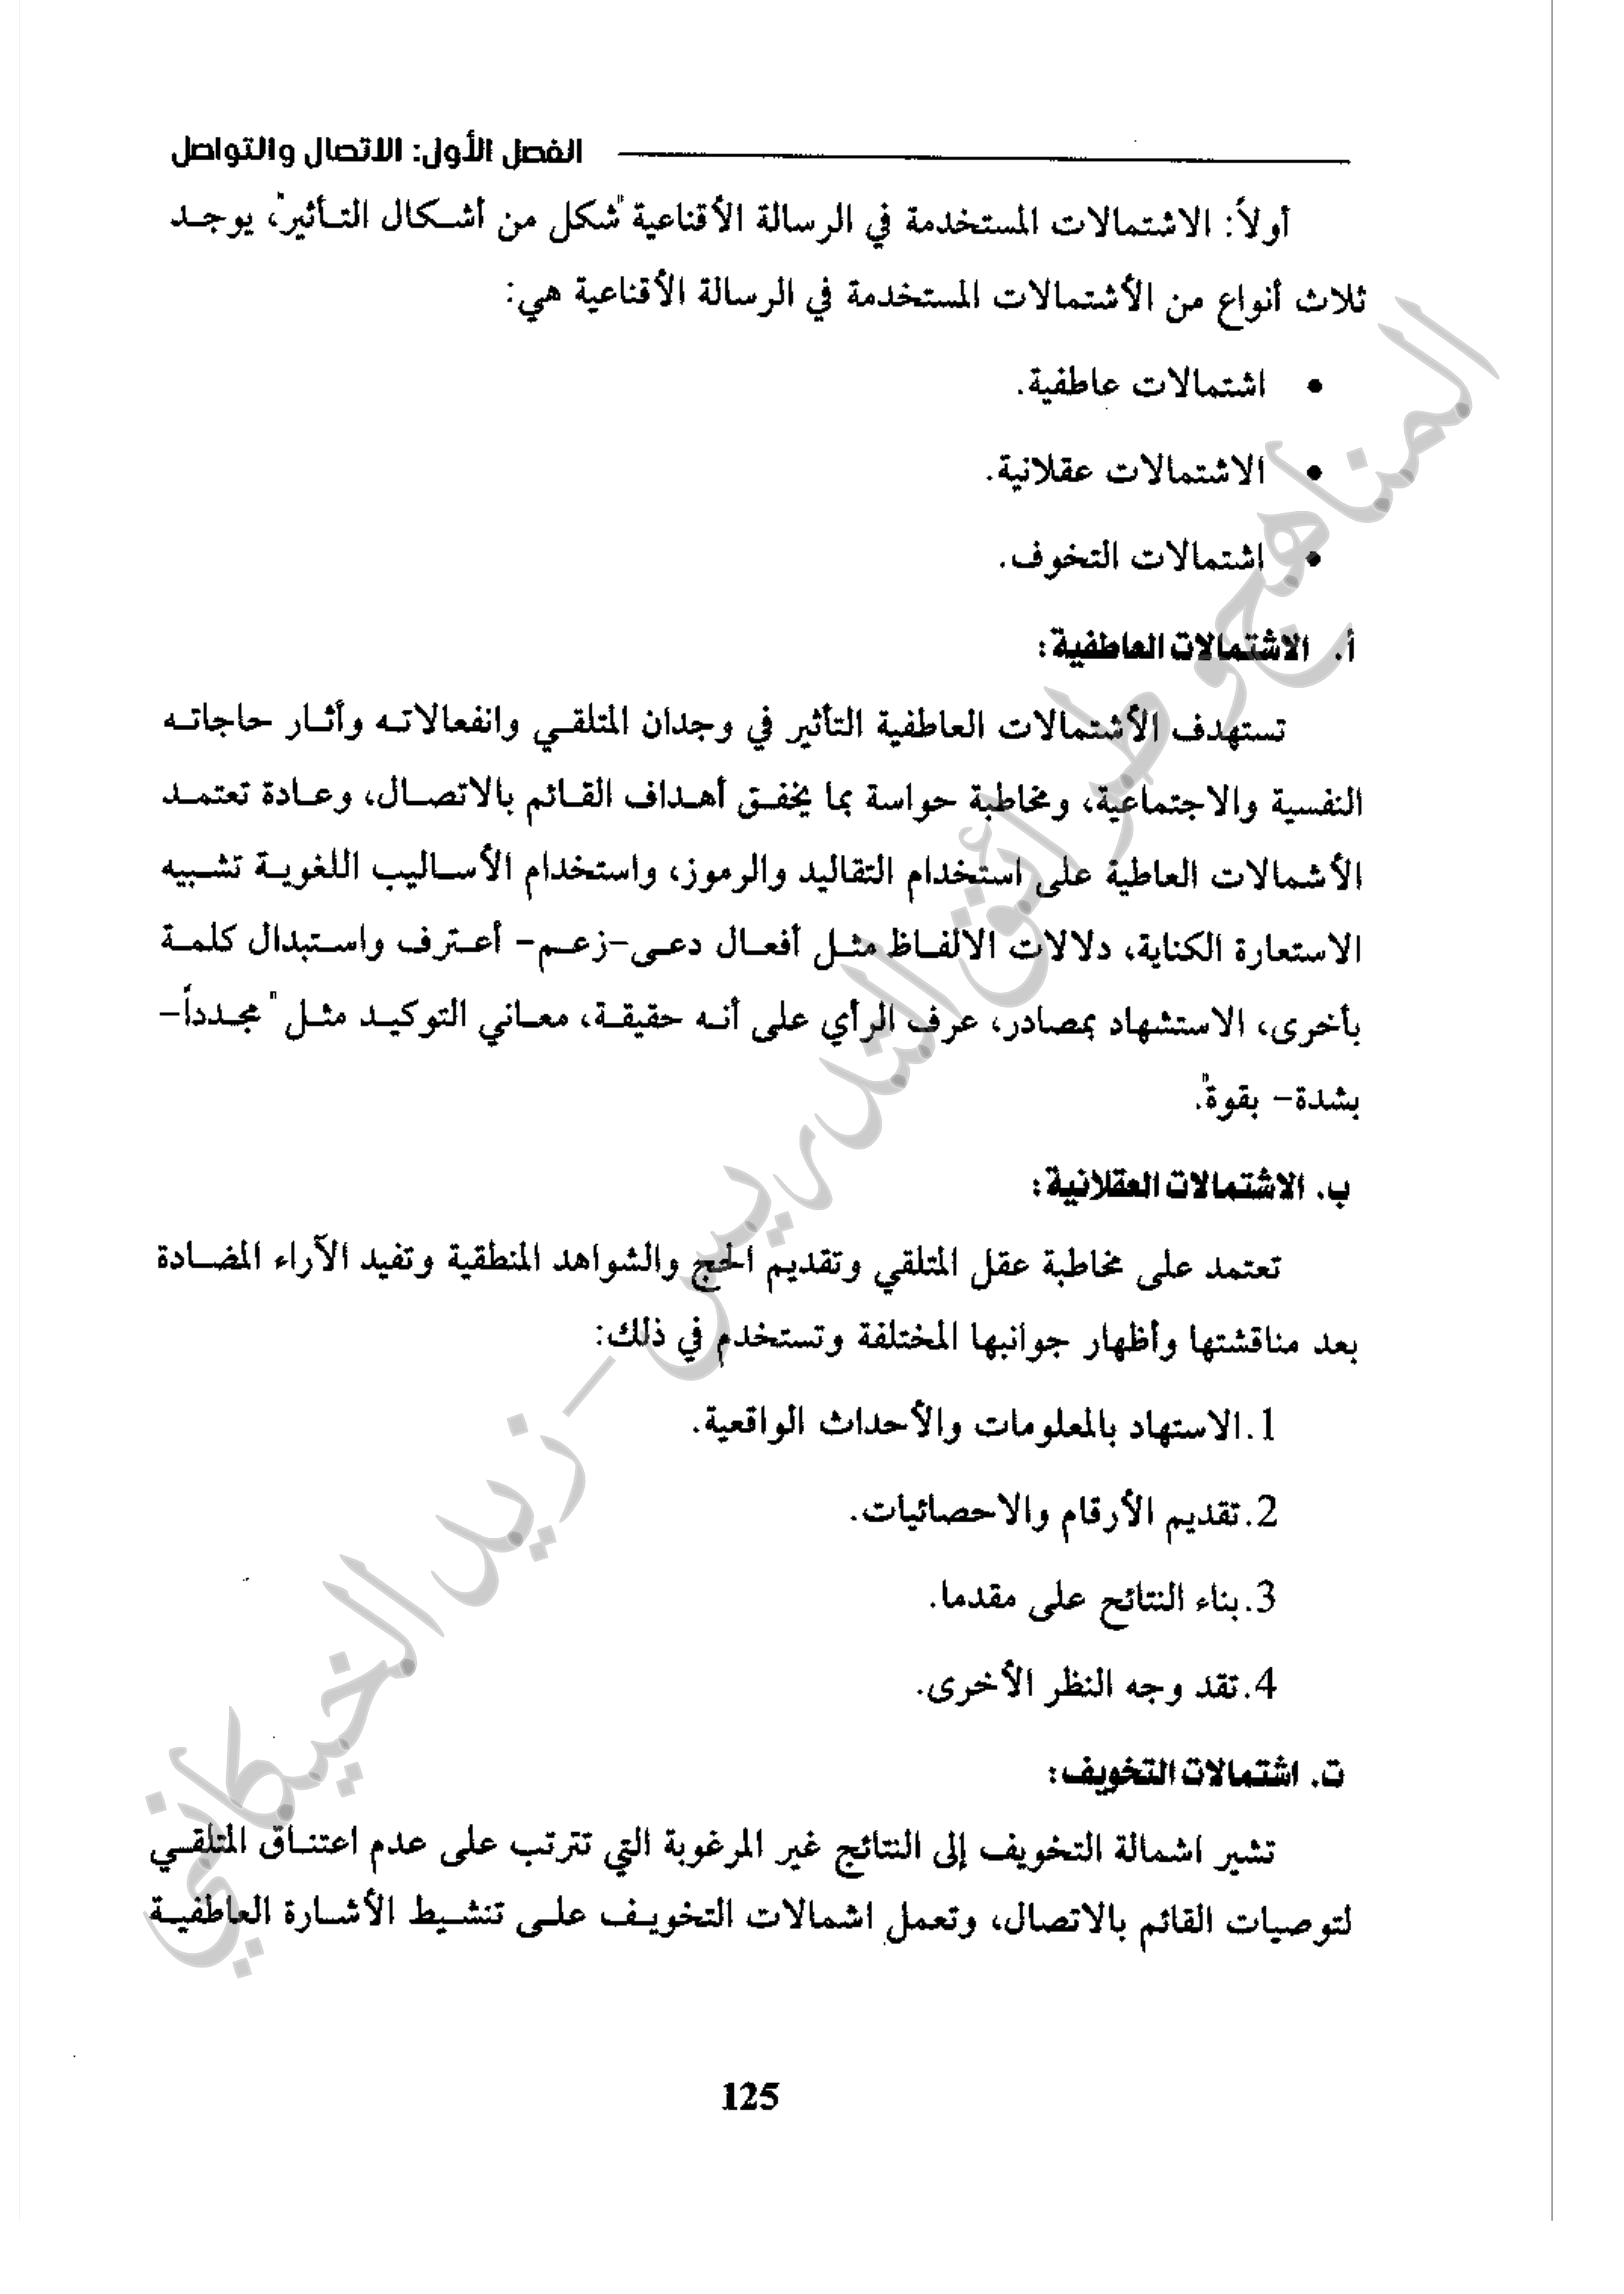 الفصل الأول: الاتصال والتواصل
أولاً: الاشتمالات المستخدمة في الرسالة الأقناعية "شكل من أشكال التأثير"، يوجد
ثلاث أنواع من الأشتمالات المستخدمة في الرسالة الأقناعية هي:
• اشتمالات عاطفية.
• الاشتمالات عقلانية.
• اشتمالات التخوف.
أ. الاشتمالات العاطفية:
تستهدف الأشتمالات العاطفية التأثير في وجدان المتلقي وانفعالاته وأثار حاجاته
النفسية والاجتماعية، ومخاطبة حواسة بما يخفق أهداف القائم بالاتصال، وعادة تعتمد
الأشمالات العاطية على استخدام التقاليد والرموز، واستخدام الأساليب اللغوية تشبيه
الاستعارة الكناية، دلالات الالفاظ مثل أفعال دعى-زعم- أعترف واستبدال كلمة
بأخرى، الاستشهاد بمصادر، عرف الرأي على أنه حقيقة، معاني التوكيد مثل " مجدداً-
بشدة- بقوة".
ب. الاشتمالات العقلانية:
تعتمد على مخاطبة عقل المتلقي وتقديم الحج والشواهد المنطقية وتفيد الآراء المضادة
بعد مناقشتها وأظهار جوانبها المختلفة وتستخدم في ذلك:
1.الاستهاد بالمعلومات والأحداث الواقعية.
2.تقديم الأرقام والاحصائيات.
3.بناء النتائح على مقدما.
4.تقد وجه النظر الأخرى.
ت. اشتمالات التخويف:
تشير اشمالة التخويف إلى النتائج غير المرغوبة التي تترتب على عدم اعتناق المتلقي
لتوصيات القائم بالاتصال، وتعمل اشمالات التخويف على تنشيط الأشارة العاطفية
125
المناهج وطرائق التدريس - زيد الخيكاني